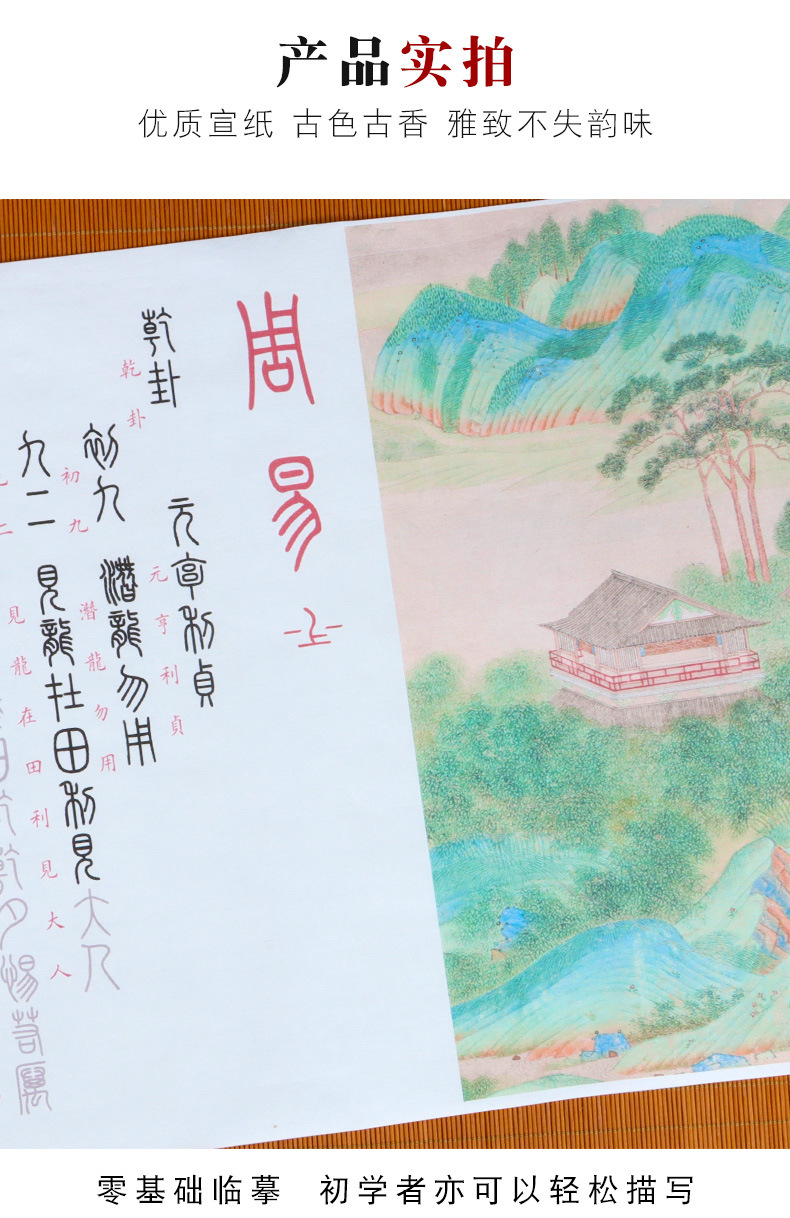 产品实拍
优质宣纸 古色古香 雅致不失韵味
周易上
乾卦 元亨利貞
乾卦 元亨利貞
初九 潛龍勿用
初九 潛龍勿用
九二 見龍在田利見大人
九二 見龍在田利見大人
日乾乾夕惕若厲
零基础临摹 初学者亦可以轻松描写